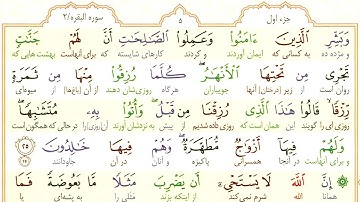 جزء اول ۵ سوره البقره/۲
وَبَشِّرِ الَّذِينَ ءَامَنُوا وَعَمِلُوا الصَّالِحَاتِ أَنَّ لَهُمْ جَنَّاتٍ
و مژده ده به کسانی که ایمان آوردند و کردند کارهای شایسته که برای آنهاست بهشت‌هایی که
تَجْرِی مِن تَحْتِهَا الْأَنْهَارُ كُلَّمَا رُزِقُوا مِنْهَا مِن ثَمَرَةٍ
روان است از زیر (درختان) آنها جویباران هرگاه روزی‌شان دهند از آن (باغ‌ها) از میوه‌ای
رِزْقًا قَالُوا هَذَا الَّذِی رُزِقْنَا مِن قَبْلُ وَأُتُوا بِهِ مُتَشَابِهًا
روزی ای را گویند این همان است که روزی داده شدیم از پیش به نزدشان آورند آن(روزی)را در حالی که همگون است
وَلَهُمْ فِيهَا أَزْوَاجٌ مُطَهَّرَةٌ وَهُمْ فِيهَا خَالِدُونَ ۲۵
و برای آنهاست در آنجا همسرانی پاکیزه و آنان در آنجا جاودانند
إِنَّ اللَّهَ لَا يَسْتَحْیِ أَن يَضْرِبَ مَثَلًا مَا بَعُوضَةً فَمَا
همانا خدا شرم نمی‌کند از اینکه بزند مثلی را به پشه‌ای یا